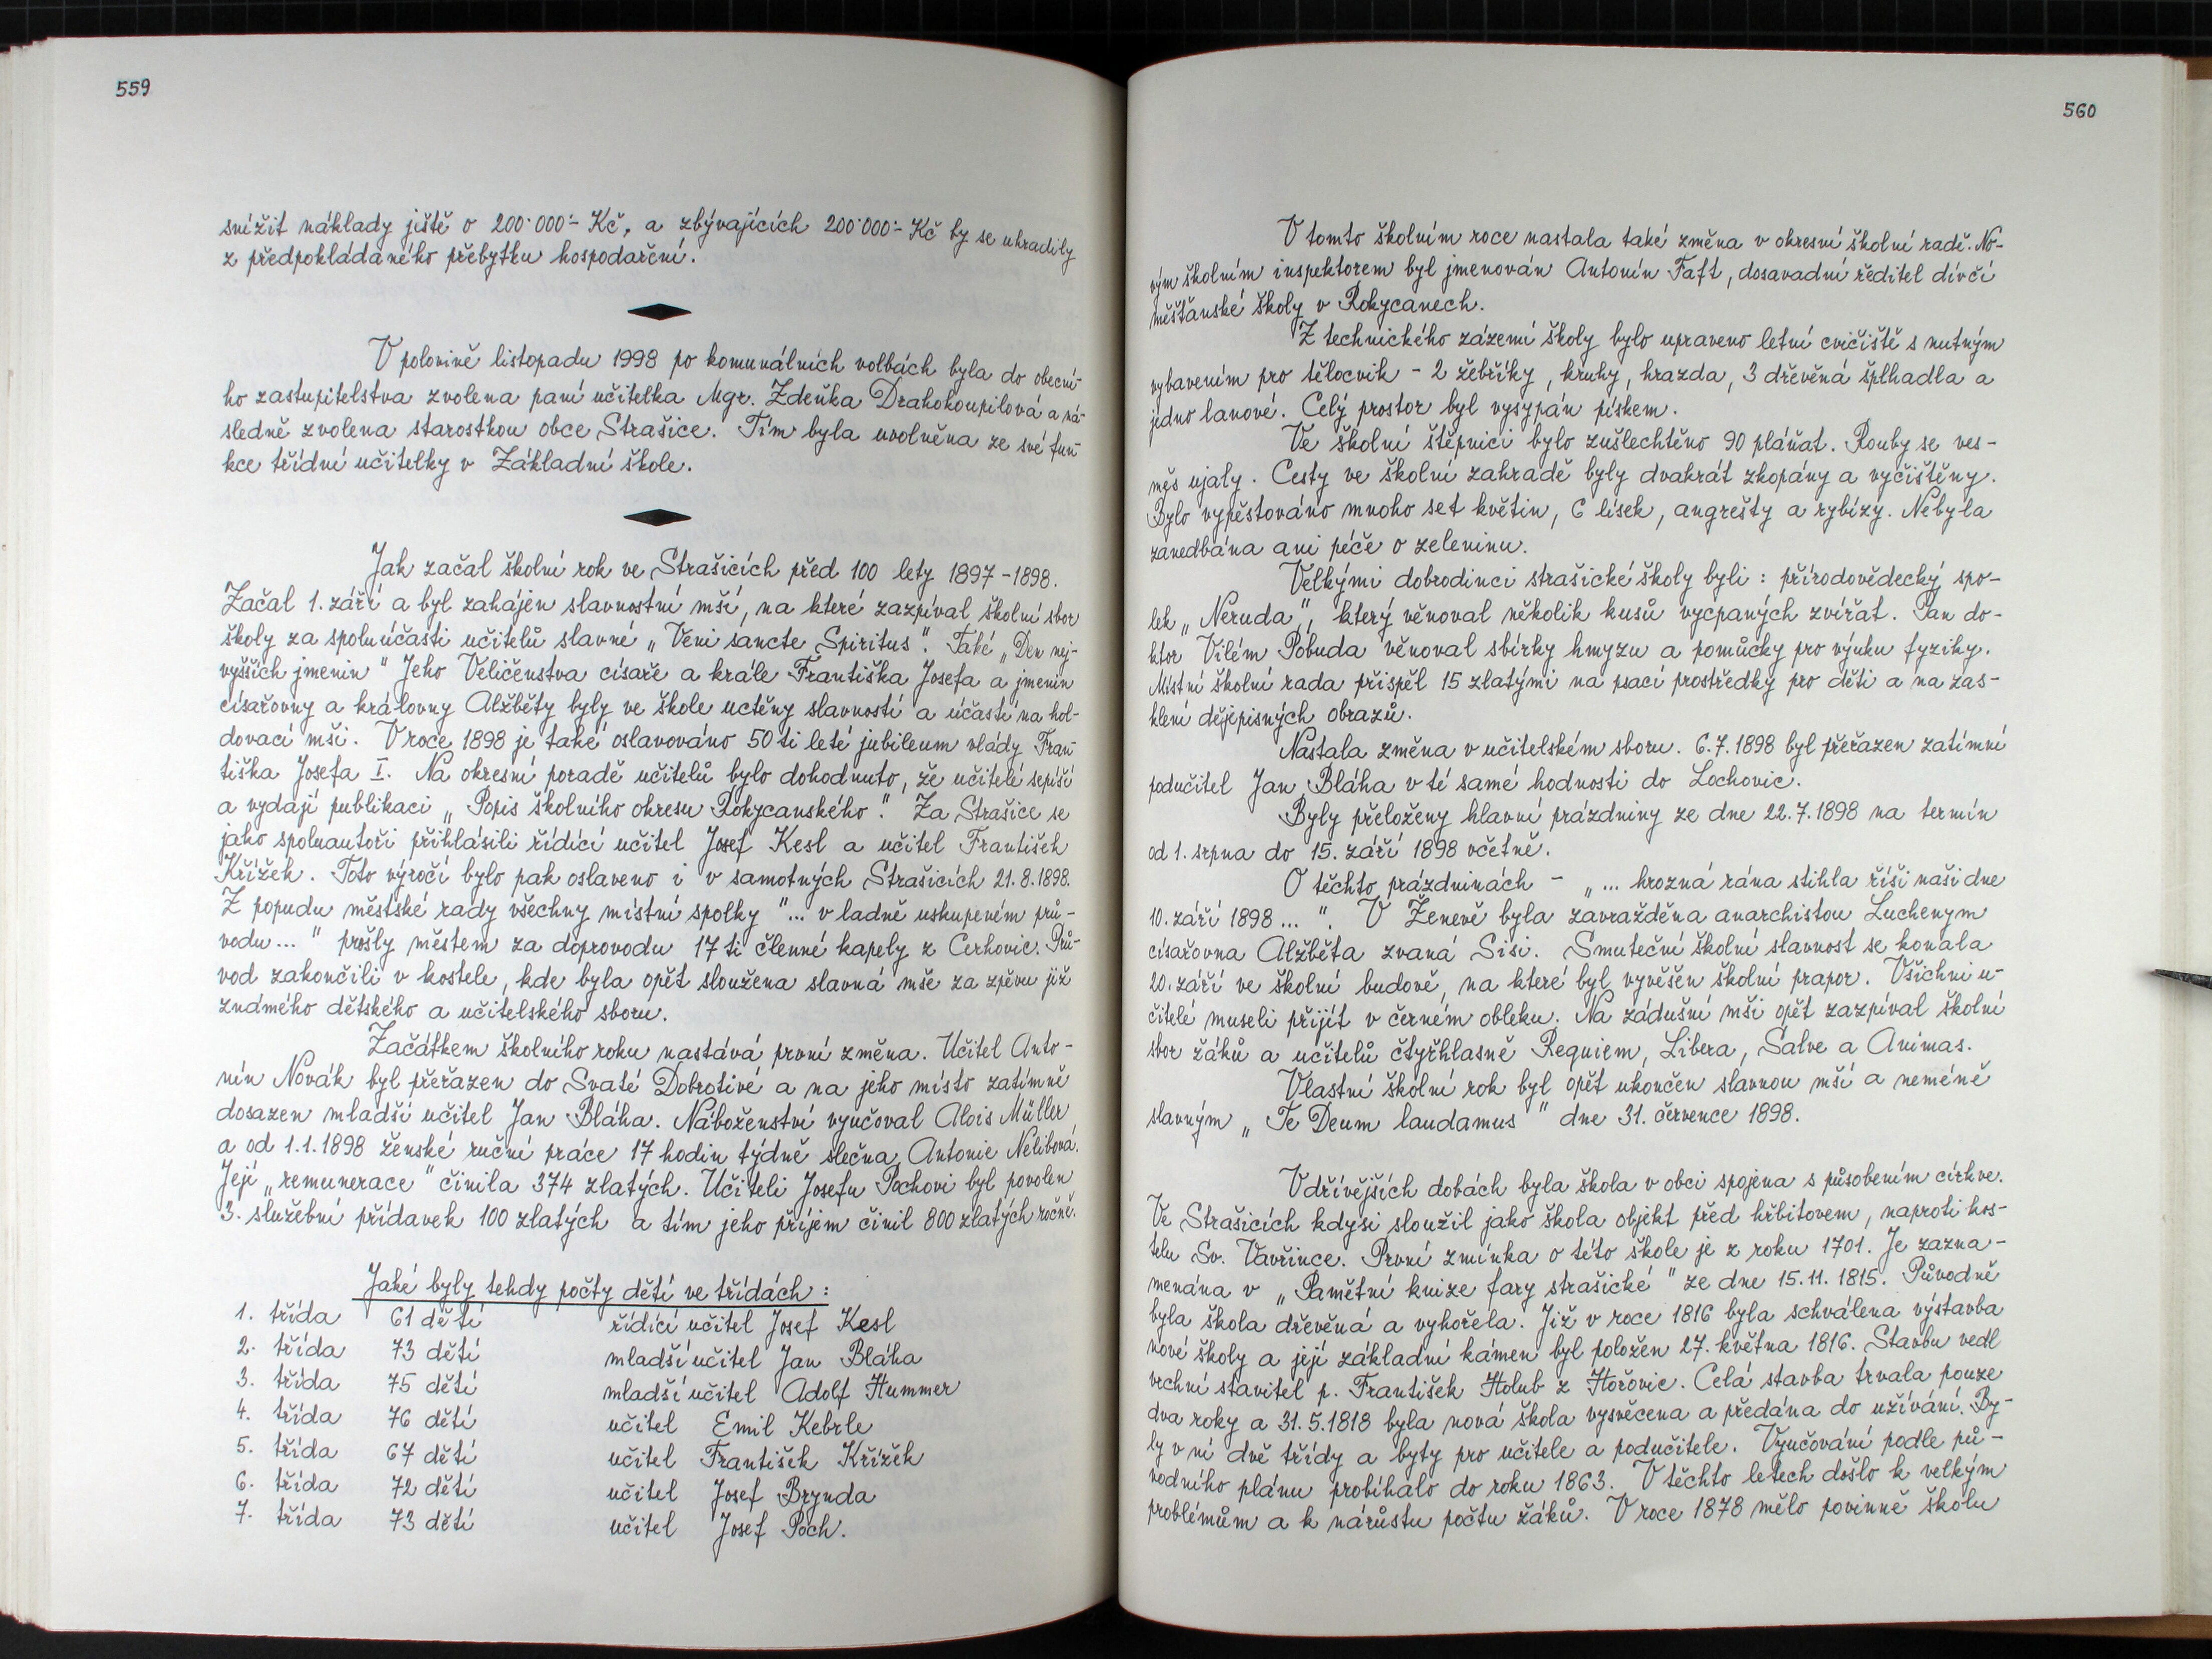 559
snížit náklady jistě o 200'000'- Kč, a zbývajících 200'000'- Kč by se uhradily
z předpokládaného přebytku hospodaření.
V polovině listopadu 1998 po komunálních volbách byla do obecní-
ho zastupitelstva zvolena paní učitelka Mgr. Zdeňka Drahokoupilová a ná-
sledně zvolena starostkou obce Strašice. Tím byla uvolněna ze své fun-
kce třídní učitelky v Základní škole.
Jak začal školní rok ve Strašicích před 100 lety 1897-1898.
Začal 1. září a byl zahájen slavnostní mší, na které zazpíval školní sbor
školy za spoluúčasti učitelů slavné „Veni sancte Spiritus". Také „Den nej-
vyšších jmenin" Jeho Veličenstva císaře a krále Františka Josefa a jmenin
císařovny a královny Alžběty byly ve škole uctěny slavností a účastí na hol-
dovací mši. V roce 1898 je také oslavováno 50ti leté jubileum vlády Fran-
tiška Josefa I. Na okresní poradě učitelů bylo dohodnuto, že učitelé sepíší
a vydají publikaci „Popis školního okresu Rokycanského". Za Strašice se
jako spoluautoři přihlásili řídící učitel Josef Kesl a učitel František
Křížek. Toto výročí bylo pak oslaveno i v samotných Strašicích 21.8.1898.
Z popudu městské rady všechny místní spolky "... v ladně uskupeném prů-
vodu..." prošly městem za doprovodu 17ti členné kapely z Cerhovic. Prů-
vod zakončili v kostele, kde byla opět sloužena slavná mše za zpěvu již
známého dětského a učitelského sboru.
Začátkem školního roku nastává první změna. Učitel Anto-
nín Novák byl přeřazen do Svaté Dobrotivé a na jeho místo zatímně
dosazen mladší učitel Jan Bláha. Náboženství vyučoval Alois Müller
a od 1.1.1898 ženské ruční práce 17 hodin týdně slečna Antonie Nelibová.
Její „remunerace" činila 374 zlatých. Učiteli Josefu Pochovi byl povolen
3. služební přídavek 100 zlatých a tím jeho příjem činil 800 zlatých ročně.
Jaké byly tehdy počty dětí ve třídách:
1. třída 61 dětí řídící učitel Josef Kesl
2. třída 73 dětí mladší učitel Jan Bláha
3. třída 75 dětí mladší učitel Adolf Hummer
4. třída 76 dětí učitel Emil Kebrle
5. třída 67 dětí učitel František Křížek
6. třída 72 dětí učitel Josef Brynda
7. třída 73 dětí učitel Josef Poch.
560
V tomto školním roce nastala také změna v okresní školní radě. No-
vým školním inspektorem byl jmenován Antonín Taft, dosavadní ředitel dívčí
měšťanské školy v Rokycanech.
Z technického zázemí školy bylo upraveno letní cvičiště s nutným
vybavením pro tělocvik - 2 žebříky, kruhy, hrazda, 3 dřevěná šplhadla a
jedno lanové. Celý prostor byl vysypán pískem.
Ve školní štěpnici bylo zušlechtěno 90 pláňat. Rouby se ves-
měs ujaly. Cesty ve školní zahradě byly dvakrát zkopány a vyčištěny.
Bylo vypěstováno mnoho set květin, 6 lísek, angrešty a rybízy. Nebyla
zanedbána ani péče o zeleninu.
Velkými dobrodinci strašické školy byli: přírodovědecký spo-
lek „Neruda", který věnoval několik kusů vycpaných zvířat. Pan do-
ktor Vilém Pobuda věnoval sbírky hmyzu a pomůcky pro výuku fyziky.
Místní školní rada přispěl 15 zlatými na psací prostředky pro děti a na zas-
klení dějepisných obrazů.
Nastala změna v učitelském sboru. 6.7.1898 byl přeřazen zatímní
podučitel Jan Bláha v té samé hodnosti do Lochovic.
Byly přeloženy hlavní prázdniny ze dne 22.7.1898 na termín
od 1. srpna do 15. září 1898 včetně.
O těchto prázdninách - „... hrozná rána stihla říši naši dne
10. září 1898...". V Ženevě byla zavražděna anarchistou Luchenym
císařovna Alžběta zvaná Sisi. Smuteční školní slavnost se konala
20. září ve školní budově, na které byl vyvěšen školní prapor. Všichni u-
čitelé museli přijít v černém obleku. Na zádušní mši opět zazpíval školní
sbor žáků a učitelů čtyřhlasně Requiem, Libera, Salve a Animas.
Vlastní školní rok byl opět ukončen slavnou mší a neméně
slavným „Te Deum laudamus" dne 31. července 1898.
V dřívějších dobách byla škola v obci spojena s působením církve.
Ve Strašicích kdysi sloužil jako škola objekt před hřbitovem, naproti kos-
telu Sv. Vavřince. První zmínka o této škole je z roku 1701. Je zazna-
menána v „Pamětní knize fary strašické" ze dne 15.11. 1815. Původně
byla škola dřevěná a vyhořela. Již v roce 1816 byla schválena výstavba
nové školy a její základní kámen byl položen 27. května 1816. Stavbu vedl
vrchní stavitel p. František Holub z Hořovic. Celá stavba trvala pouze
dva roky a 31.5.1818 byla nová škola vysvěcena a předána do užívání. By-
ly v ní dvě třídy a byty pro učitele a podučitele. Vyučování podle pů-
vodního plánu probíhalo do roku 1863. V těchto letech došlo k velkým
problémům a k nárůstu počtu žáků. V roce 1878 mělo povinně školu